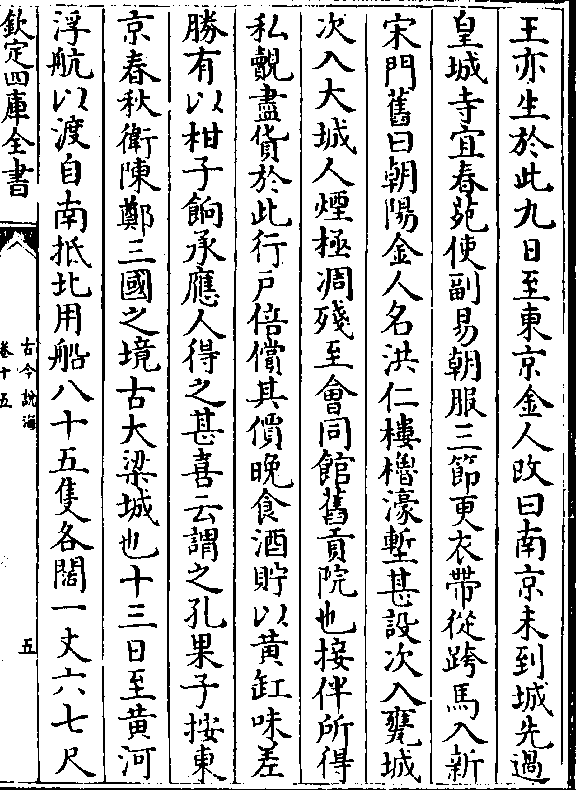 王亦生於此九日至東京金人改曰南京未到城先過
皇城寺宜春苑使副易朝服三節更衣帶從跨馬入新
宋門舊曰朝陽金人名洪仁樓櫓濠塹甚設次入甕城
次入大城人煙極凋殘至會同館舊貢院也接伴所得
私覿盡貨於此行戶倍償其價晚食酒貯以黃缸味差
勝有以柑子餉承應人得之甚喜云謂之孔果子按東
京春秋衛陳鄭三國之境古大梁城也十三日至黃河
浮航以渡自南抵北用船八十五隻各闊一丈六七尺
欽定四庫全書
古今說海
卷十五
五